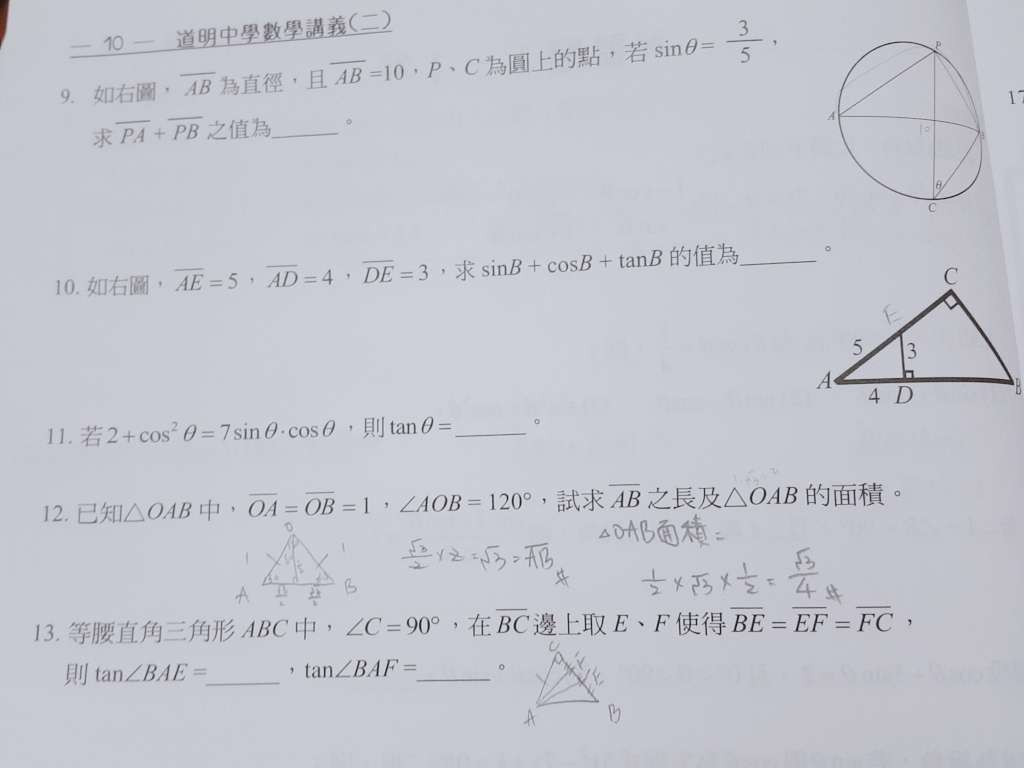 — 10 — 道明中學數學講義(二)
9. 如右圖，$\overline{AB}$ 為直徑，且 $\overline{AB}$=10，P、C 為圓上的點，若 $\sin\theta=\frac{3}{5}$，
求 $\overline{PA}+\overline{PB}$ 之值為______。
P
A
θ
C
17
10. 如右圖，$\overline{AE}=5$，$\overline{AD}=4$，$\overline{DE}=3$，求 sinB + cosB + tanB 的值為______。
C
E
5
3
A
B
4 D
11. 若 $2+\cos^2\theta=7\sin\theta\cdot\cos\theta$，則 $\tan\theta=$______。
12. 已知△OAB 中，$\overline{OA}=\overline{OB}=1$，∠AOB = 120°，試求 $\overline{AB}$ 之長及△OAB 的面積。
△OAB面積=
$\frac{\sqrt{3}}{2}\times 2=\sqrt{3}=\overline{AB}$ #
$\frac{1}{2}\times\sqrt{3}\times\frac{1}{2}=\frac{\sqrt{3}}{4}$ #
O
1 1
A $\frac{\sqrt{3}}{2}$ $\frac{\sqrt{3}}{2}$ B
13. 等腰直角三角形 ABC 中，∠C = 90°，在 $\overline{BC}$ 邊上取 E、F 使得 $\overline{BE}=\overline{EF}=\overline{FC}$，
則 tan∠BAE =______，tan∠BAF =______。
C
F
E
A B